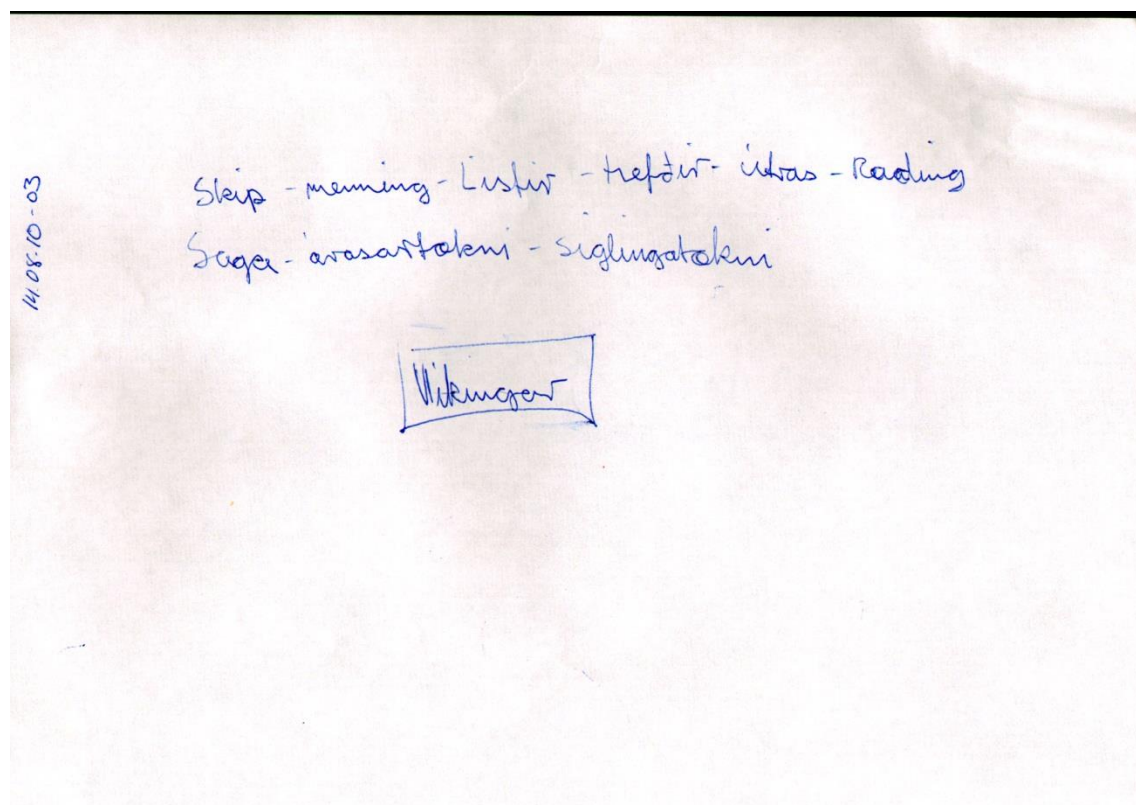 14.08.10-03
Skip - menning - Listir - Hefðir - útrás - Ráðning
Saga - árásartækni - siglingatækni
Víkingar